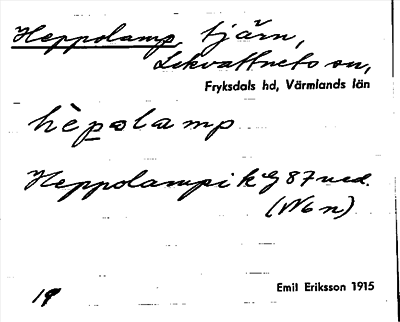 Heppolamp, tjärn,
Lekvattnets sn,
Fryksdals hd, Värmlands län
hèpəlamp
Heppolampi k G 87 ned.
(W6n)
19
Emil Eriksson 1915